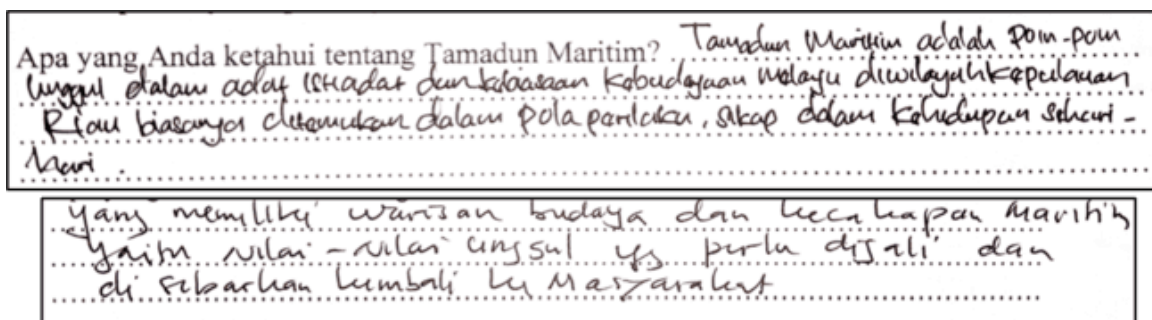 Apa yang Anda ketahui tentang Tamadun Maritim? Tamadun Maritim adalah poin-poin
unggul dalam adat istiadat dan kebiasaan kebudayaan melayu diwilayah kepulauan
Riau biasanya ditemukan dalam pola perilaku, sikap dalam kehidupan sehari-
hari.
yang memiliki warisan budaya dan kecakapan maritim
yaitu nilai-nilai unggul yg perlu digali dan
di sebarkan kembali ke Masyarakat